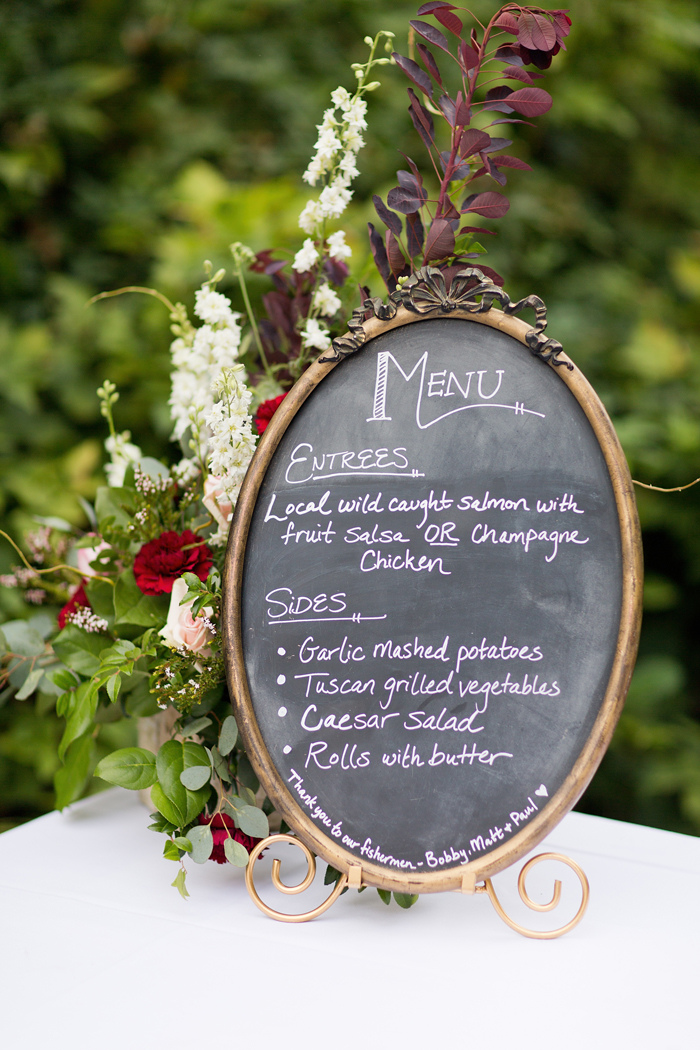 MENU
ENTREES
Local wild caught salmon with
fruit salsa OR Champagne
Chicken
SIDES
• Garlic mashed potatoes
• Tuscan grilled vegetables
• Caesar salad
• Rolls with butter
Thank you to our fishermen - Bobby, Matt + Paul ♥